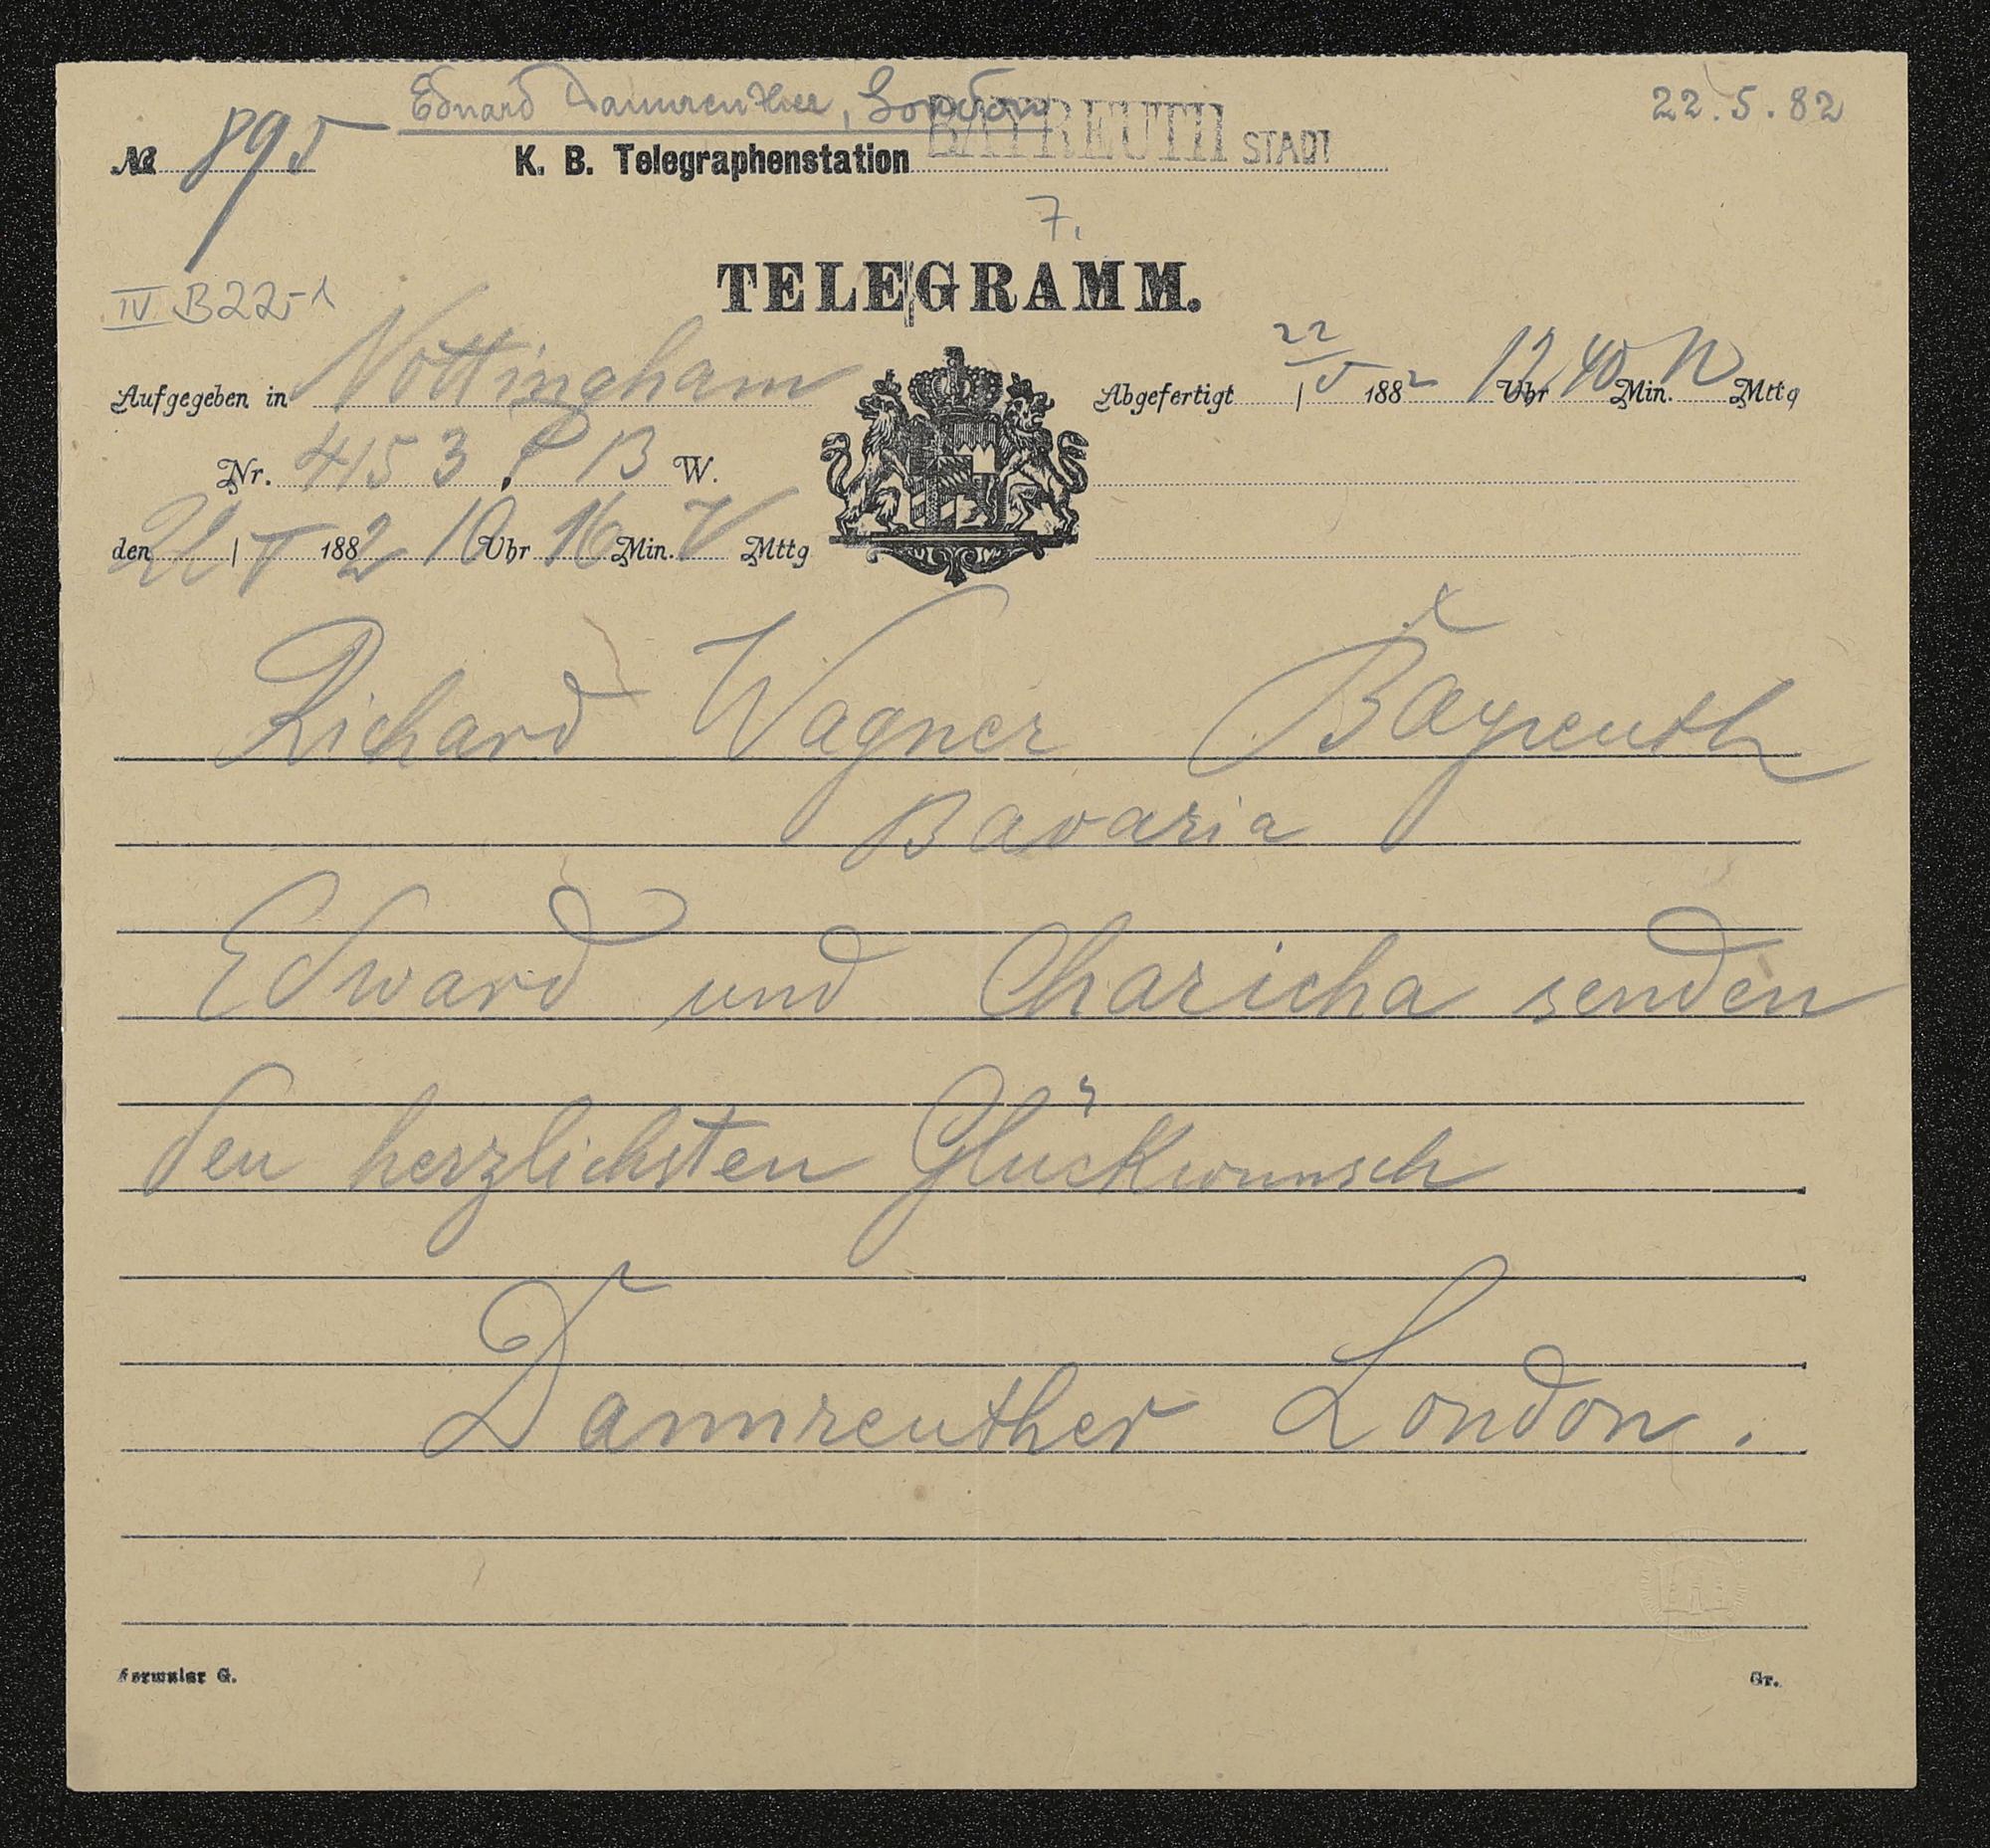 Eduard Dannreuther, London
22.5.82
№ 895
K. B. Telegraphenstation BAYREUTH STADT
7.
TELEGRAMM.
IV B 22-1
Aufgegeben in Nottingham
Abgefertigt 22/5 1882 12 Uhr 40 Min. N Mttg
Nr. 4153 P B W.
den 22/5 1882 10 Uhr 16 Min. V Mttg
Richard Wagner Bayreuth
Bavaria
Edward und Charicha senden
den herzlichsten Glückwunsch
Dannreuther London.
Formular G.
Gr.